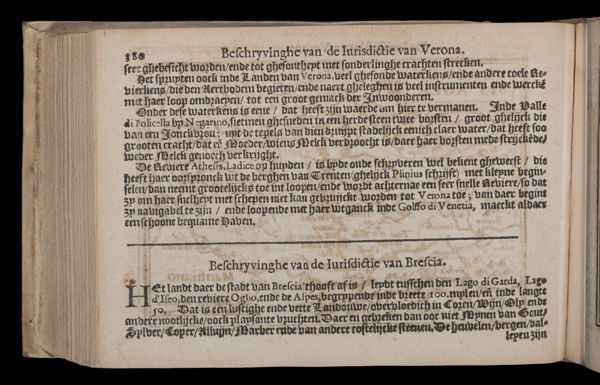 380
Beschryvinghe van de Iurisdictie van Verona.
seer ghebesicht worden/ende tot ghesontheyt met sonderlinghe crachten strecken.
Het spruyten oock inde Landen van Verona, veel ghesonde waterkens/ende andere coele Re-
vierkens/die den Aertbodem begieten/ende naert gheleghen is veel instrumenten ende wercke
met haer loop omdraeyen/ tot een groot gemack der Inwoonderen.
Onder dese waterkens is eene / dat heeft zijn waerde om hier te vermanen. Inde Valle
di Policella by Negarino, siet men ghesneden in een herde steen twee borsten / groot ghelijck die
van een Jonckvrou; uyt de tepels van dien druypt stadelijck eenich claer water/dat heeft soo
grooten cracht/dat eē Moeder/wiens Melck verdroocht is/daer haer borsten mede strijckēde/
weder Melck genoech verkrijght.
De Reviere Athesis, Ladice op huyden / is by de oude schryveren wel bekent gheweest / die
heeft haer oorspronck uyt de berghen van Trenten (ghelijck Plinius schrijft) met kleyne begin-
selen/dan neemt grootelijcks toe int loopen/ende wordt achternae een seer snelle Reviere/so dat
zy om haer snelheyt met schepen niet kan gebruyckt worden tot Verona toe; van daer begint
zy navigabel te zijn / ende loopende met haer wtganck inde Golffo di Venetia, maeckt aldaer
een schoone bequame Haven.
Beschryvinghe van de Iurisdictie van Brescia.
HEt landt daer de stadt van Brescia thooft af is / leydt tusschen den Lago di Garda, Lago
d'Iseo, den reviere Oglio, ende de Alpes, begrypende inde breete 100. mylen/eñ inde langte
50. Dat is een lustighe ende vette Landouwe/overvloedich in Coren/Wijn/Oly ende
andere nootlijcke/oock playsante vruchten. Daer en gebreken dan oor niet Mynen van Gout/
Sylver/Coper/Alluyn/Marber ende van andere costelijcke steenen. De heuvelen/bergen/val-
leyen zijn